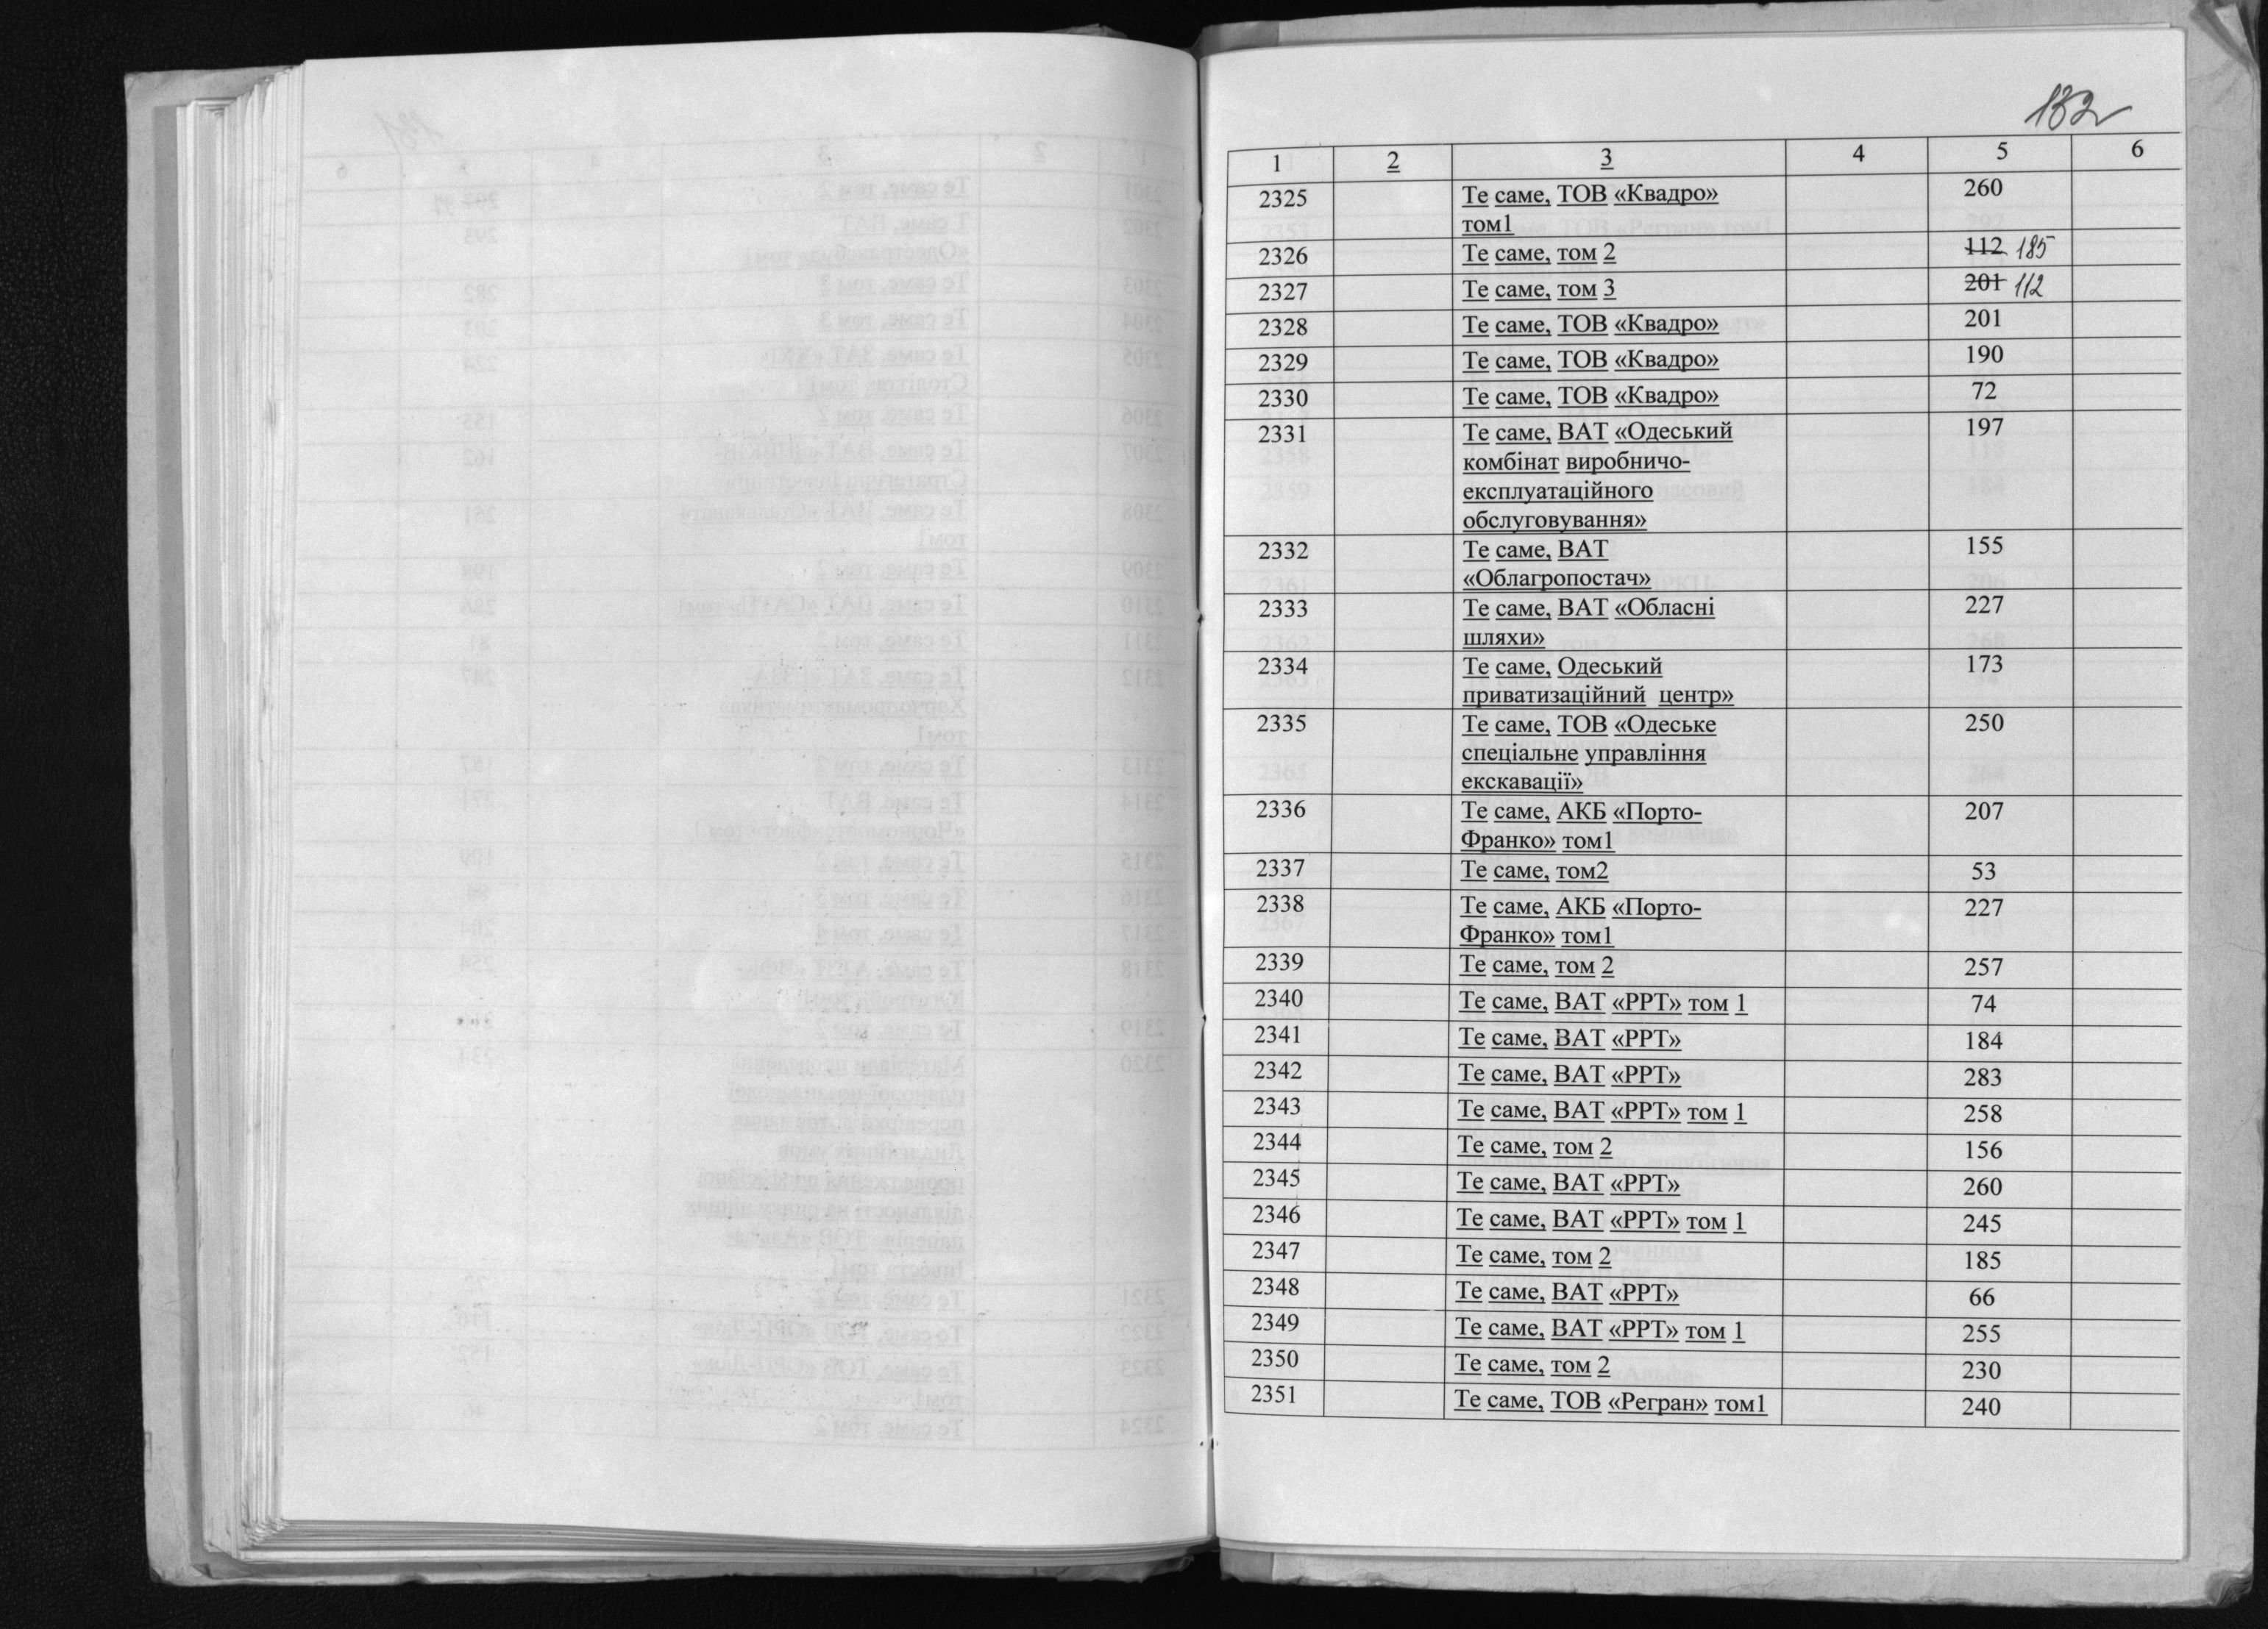 132
1 2 3 4 5 6
2325 Те саме, ТОВ «Квадро» 260
том1
2326 Те саме, том 2 112 185
2327 Те саме, том 3 201 112
2328 Те саме, ТОВ «Квадро» 201
2329 Те саме, ТОВ «Квадро» 190
2330 Те саме, ТОВ «Квадро» 72
2331 Те саме, ВАТ «Одеський 197
комбінат виробничо-
експлуатаційного
обслуговування»
2332 Те саме, ВАТ 155
«Облагропостач»
2333 Те саме, ВАТ «Обласні 227
шляхи»
2334 Те саме, Одеський 173
приватизаційний центр»
2335 Те саме, ТОВ «Одеське 250
спеціальне управління
екскавації»
2336 Те саме, АКБ «Порто- 207
Франко» том1
2337 Те саме, том2 53
2338 Те саме, АКБ «Порто- 227
Франко» том1
2339 Те саме, том 2 257
2340 Те саме, ВАТ «РРТ» том 1 74
2341 Те саме, ВАТ «РРТ» 184
2342 Те саме, ВАТ «РРТ» 283
2343 Те саме, ВАТ «РРТ» том 1 258
2344 Те саме, том 2 156
2345 Те саме, ВАТ «РРТ» 260
2346 Те саме, ВАТ «РРТ» том 1 245
2347 Те саме, том 2 185
2348 Те саме, ВАТ «РРТ» 66
2349 Те саме, ВАТ «РРТ» том 1 255
2350 Те саме, том 2 230
2351 Те саме, ТОВ «Регран» том1 240